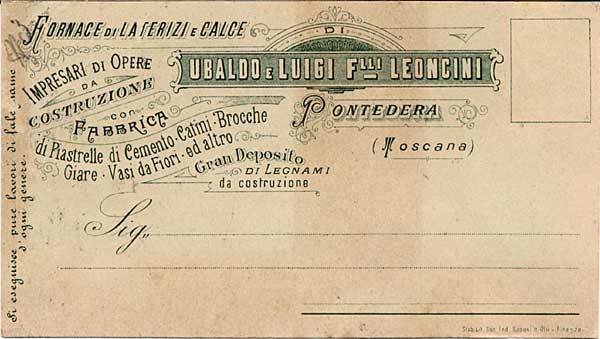 Fornace di Laterizi e Calce
DI
UBALDO E LUIGI Flli LEONCINI
IMPRESARI DI OPERE
DA
COSTRUZIONE
CON
FABBRICA
di Piastrelle di Cemento-Catini-Brocche
Giare-Vasi da Fiori-ed altro
Gran Deposito
DI LEGNAMI
da costruzione
Pontedera
(Toscana)
Sig.
Si eseguisce pure lavori di falegname
d'ogni genere.